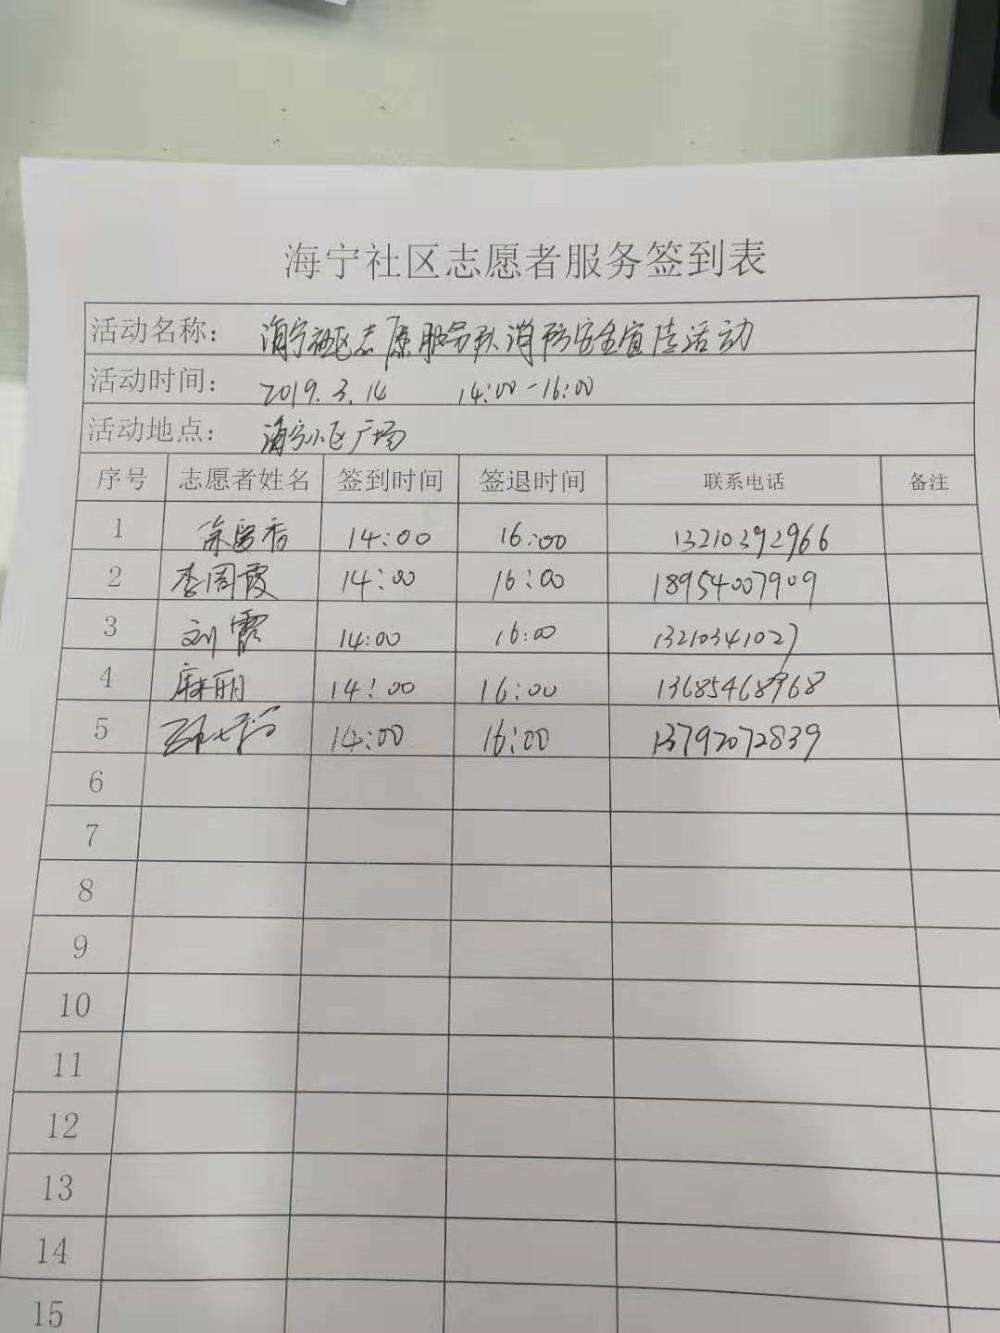 海宁社区志愿者服务签到表
活动名称： 海宁社区志愿服务队消防安全宣传活动
活动时间： 2019.3.14 14:00-16:00
活动地点： 海宁小区广场
序号 志愿者姓名 签到时间 签退时间 联系电话 备注
1 徐留香 14:00 16:00 13210392966
2 李周霞 14:00 16:00 18954007909
3 刘霞 14:00 16:00 13210341027
4 麻丽 14:00 16:00 13685468968
5 14:00 16:00 13792072839
6
7
8
9
10
11
12
13
14
15